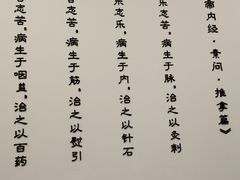 帝内经·素问·推拿篇》
志苦，病生于脉，治之以灸刺
志乐，病生于内，治之以针石
志苦，病生于筋，治之以熨引
志苦，病生于咽益，治之以百药